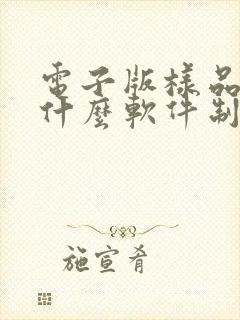 電子版樣品
什麼軟件制
施宣肴